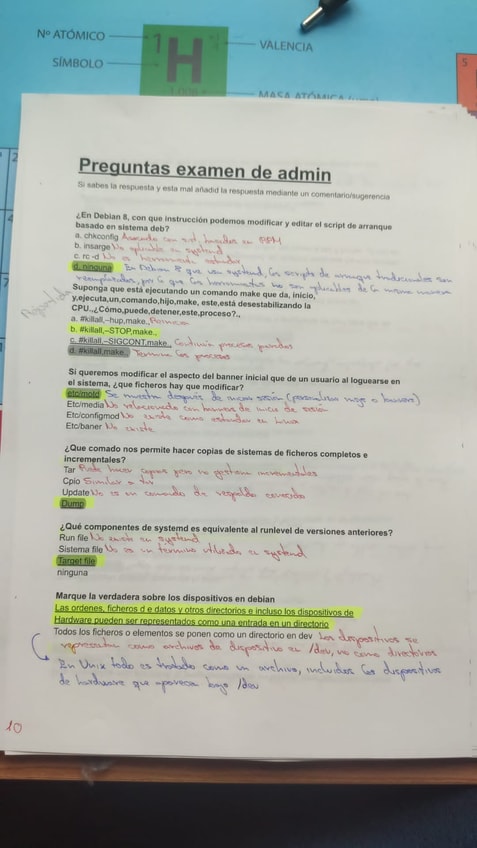 Nº ATÓMICO
1
H
VALENCIA
SÍMBOLO
MASA ATÓMICA
5
2
Preguntas examen de admin
Si sabes la respuesta y esta mal añadid la respuesta mediante un comentario/sugerencia
¿En Debian 8, con que instrucción podemos modificar y editar el script de arranque
basado en sistema deb?
a. chkconfig Asociado con sist. basados en RPM
b. insarge No aplicable en systemd
c. rc -d No es herramienta estándar
d. ninguna En Debian 8 que usa systemd, los scripts de arranque tradicionales son
reemplazados, por lo que las herramientas no son aplicables de la misma manera
Suponga que está ejecutando un comando make que da, inicio,
y,ejecuta,un,comando,hijo,make, este,está desestabilizando la
CPU.,¿Cómo,puede,detener,este,proceso?.,
a. #killall,–hup,make., Reinicia
b. #killall,–STOP,make.,
c. #killall,–SIGCONT,make., Continúa procesos parados
d. #killall,make., Termina los procesos
Si queremos modificar el aspecto del banner inicial que de un usuario al loguearse en
el sistema, ¿que ficheros hay que modificar?
etc/motd Se muestra después de iniciar sesión (personaliza msje o banner)
Etc/media No relacionado con banners de inicio de sesión
Etc/configmod No existe como estándar en Linux
Etc/baner No existe
¿Que comado nos permite hacer copias de sistemas de ficheros completos e
incrementales?
Tar Puede hacer copias pero no gestiona incrementales
Cpio Similar a tar
Update No es un comando de respaldo conocido
Dump
¿Qué componentes de systemd es equivalente al runlevel de versiones anteriores?
Run file No existe en systemd
Sistema file No es un término utilizado en systemd
Target file
ninguna
Marque la verdadera sobre los dispositivos en debian
Las ordenes, ficheros d e datos y otros directorios e incluso los dispositivos de
Hardware pueden ser representados como una entrada en un directorio
Todos los ficheros o elementos se ponen como un directorio en dev Los dispositivos se
representan como archivos de dispositivo en /dev, no como directorios
En Unix todo es tratado como un archivo, incluidos los dispositivos
de hardware que aparece bajo /dev
10